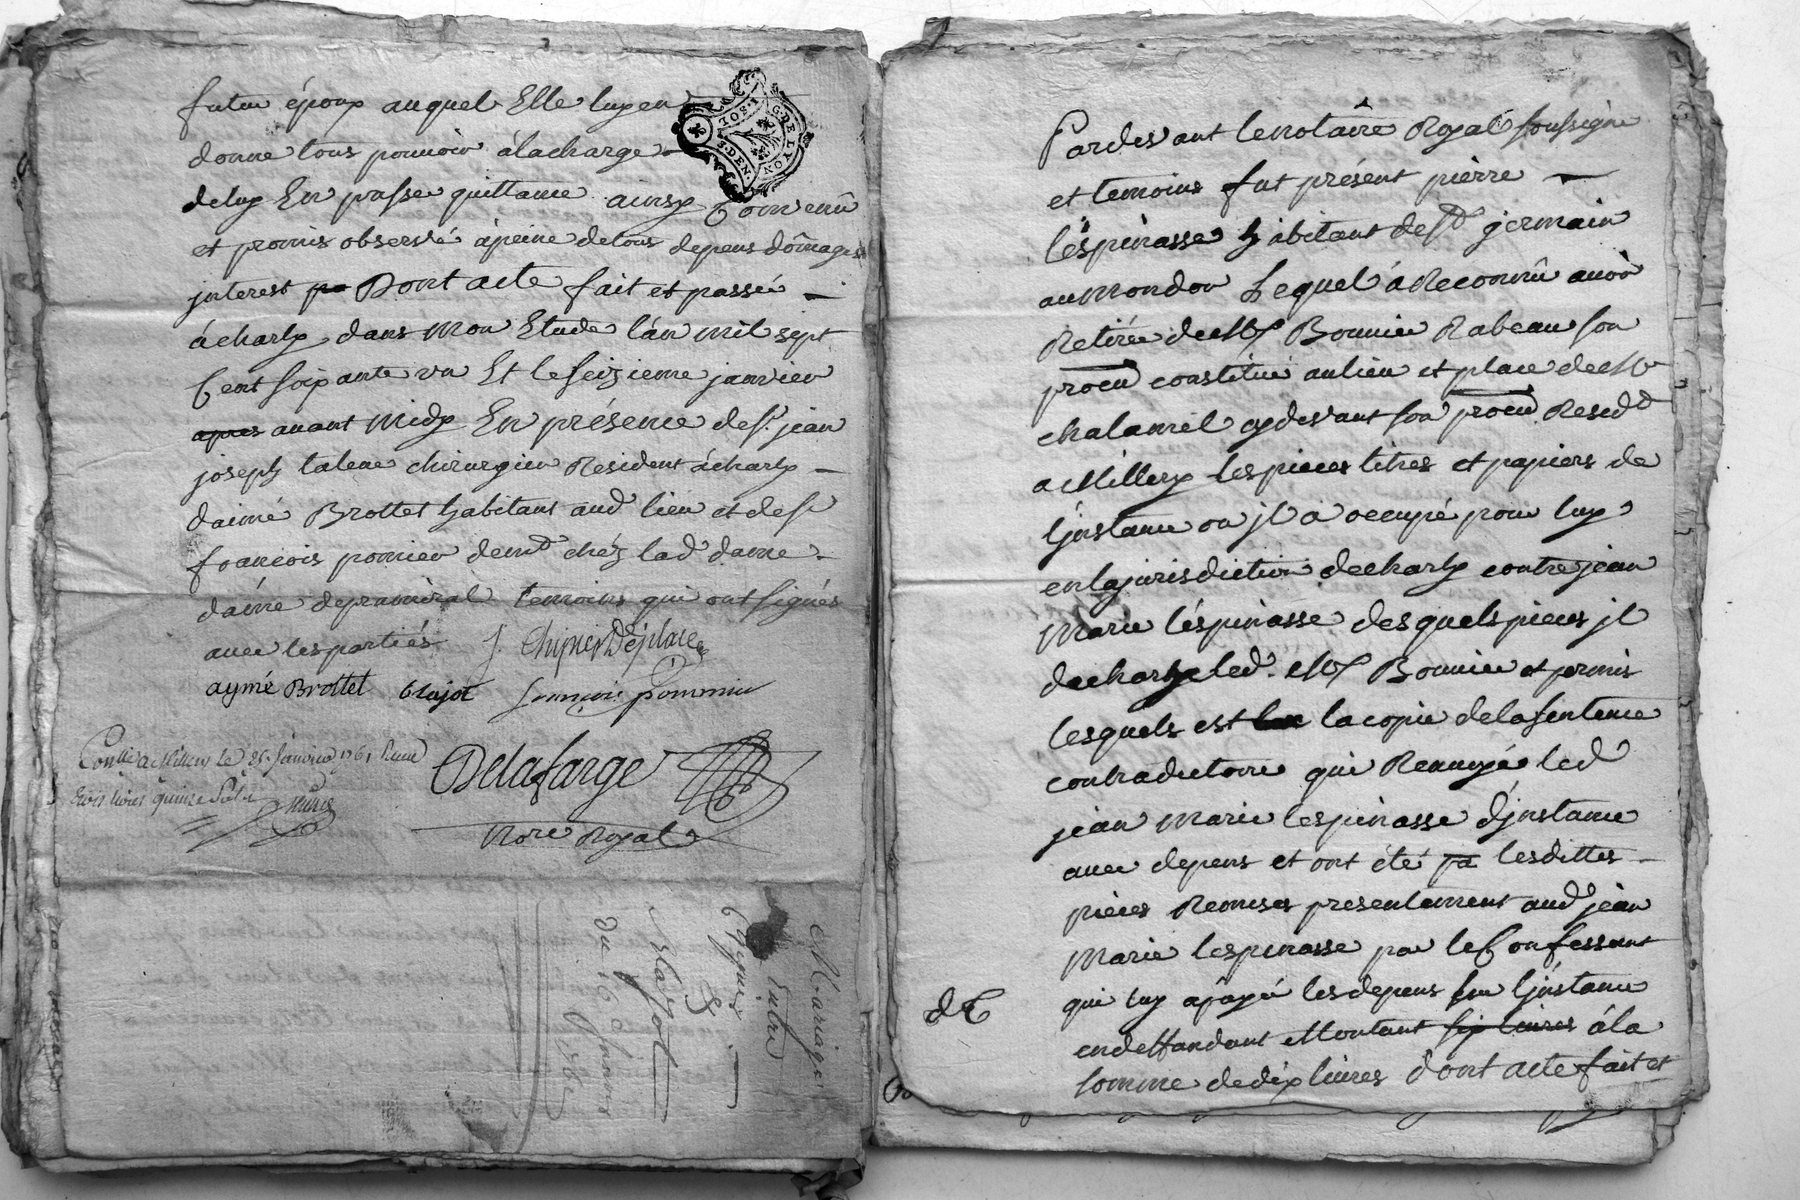 futur époux auquel Elle luy en
donne tous pouvoir á la charge
de luy En passe quittance ainsy Convenû
et promis observé á peine de tous depens dômages
jnterest pa Dont acte fait et passé
á charly dans mon Etude l'án mil sept
Cent soixante un Et le seizieme janvier
apres avant midy En présence de sr. jean
joseph talene chirurgien Resident á charly
d'aimé Brottet habitant aud. lieu et de sr
francois pomier demt. chéz lad. dame
temoins qui ont signés
avec les partiés
aymé Brottet blajot francois pommier
G. DE LYON
1. SOL.
3. DEN.
Conllé a Millery le 25. Janvier 1761 Reçu
trois livres quinze sols
Delafarge
Nore Royal
Mariage
Entre
&
blajot
du 16 Janvier
1761
Pardevant le notaire Royal soussigné
et temoins fut présent pierre
l'espinasse habitant de st germain
au mondor Lequel á Reconnû avoir
Retirée de Me Bonnier Rabeau son
procur constitué au lieu et place de Me
chalamel cy devant son procur Residt
a Millery les pieces titres et papiers de
l'jnstance ou jl a occupé pour luy
en la jurisdiction de charly contre jean
Marie l'éspinasse desquels pieces jl
decharge led. Me Bonnier et parmis
lesquels est la copie de la sentence
contradictoire qui Renvoyé led
jean Marie lespinasse d'jnstance
avec depens et ont été pa lesdittes
pièces Remises presentement aud jean
Marie lespinasse par le Confessant
qui luy apayé les depens l'jnstance
en deffandant Montant six livres á la
somme de dix livres dont acte fait et